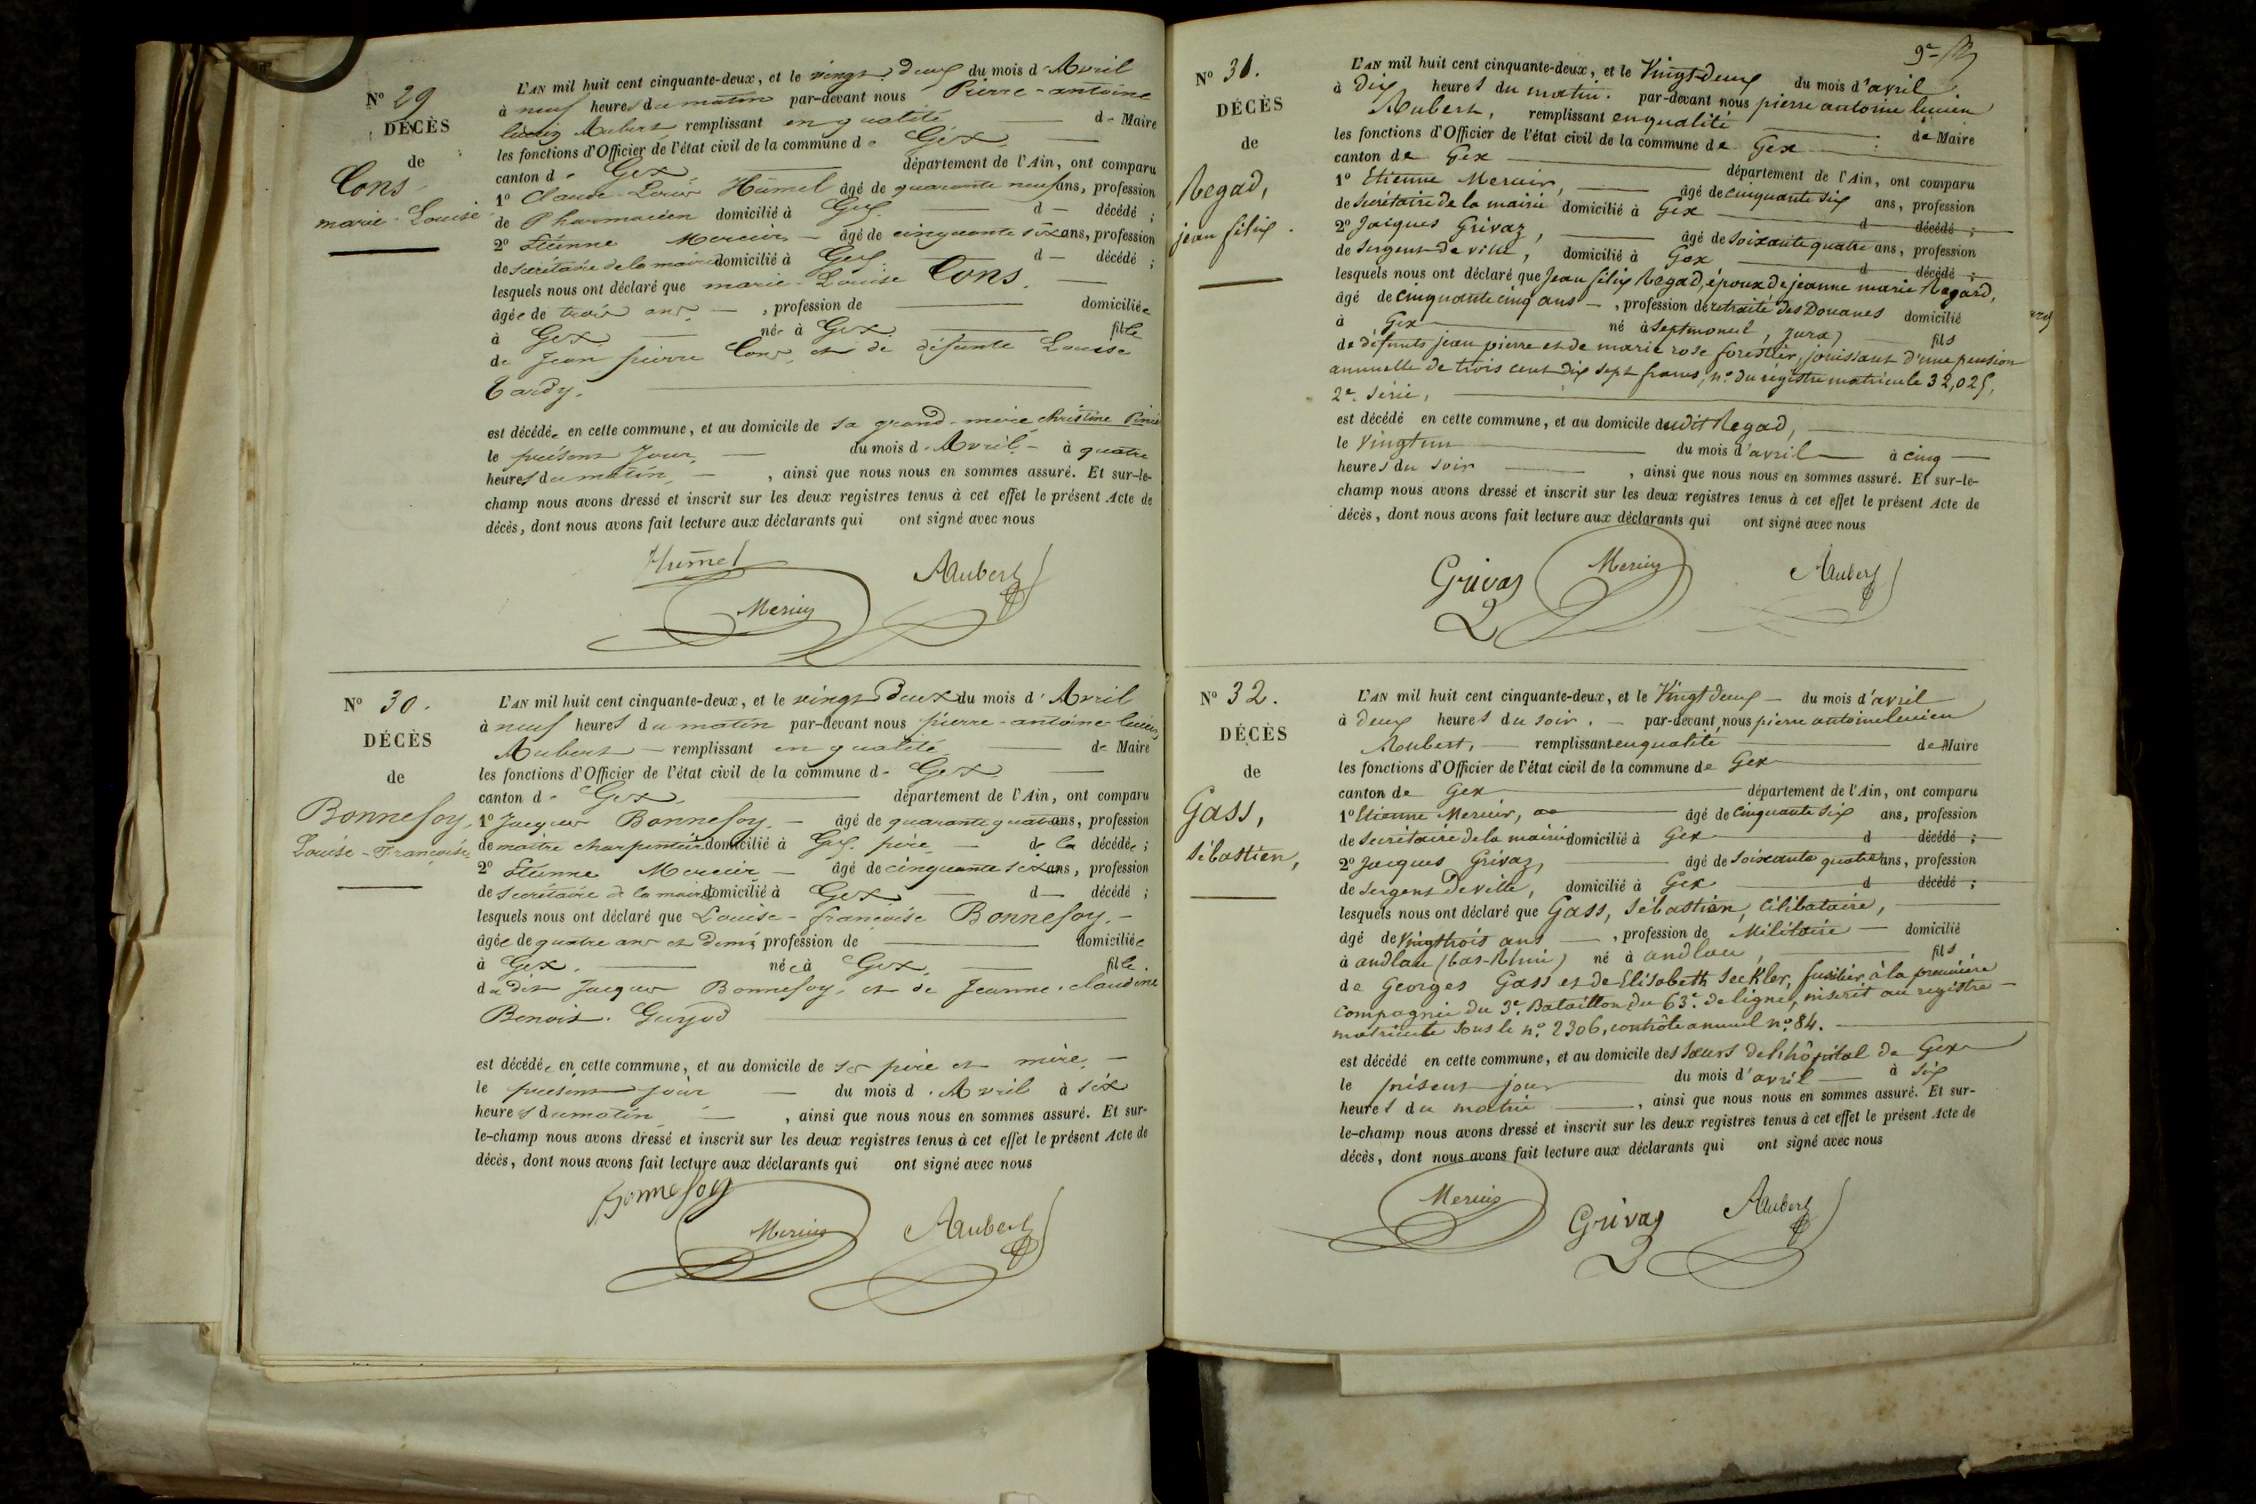 N° 29
DÉCÈS
de
Cons
marie-Louise
L'AN mil huit cent cinquante-deux, et le vingt deux du mois d'Avril
à neuf heures du matin par-devant nous Pierre-antoine
lucien Aubert remplissant en qualité de Maire
les fonctions d'Officier de l'état civil de la commune de Gex
canton de Gex département de l'Ain, ont comparu
1° Claude Louis Humel âgé de quarante neuf ans, profession
de Pharmacien domicilié à Gex d décédé ;
2° Etienne Mercier âgé de cinquante six ans, profession
de secrétaire de la mairie domicilié à Gex d décédé ;
lesquels nous ont déclaré que marie-Louise Cons.
âgée de trois ans, profession de domiciliée
à Gex née à Gex fille
de Jean pierre Cons et de défunte Louise
Tardy.
est décédée en cette commune, et au domicile de sa grand-mère christine
le présent jour du mois d'Avril à quatre
heures du matin, ainsi que nous nous en sommes assuré. Et sur-le-
champ nous avons dressé et inscrit sur les deux registres tenus à cet effet le présent Acte de
décès, dont nous avons fait lecture aux déclarants qui ont signé avec nous
Humel Aubert
Mercier
N° 30.
DÉCÈS
de
Bonnefoy,
Louise-Françoise
L'AN mil huit cent cinquante-deux, et le vingt Deux du mois d'Avril
à neuf heures du matin par-devant nous pierre-antoine-lucien
Aubert remplissant en qualité de Maire
les fonctions d'Officier de l'état civil de la commune de Gex
canton de Gex département de l'Ain, ont comparu
1° Jacques Bonnefoy. âgé de quarante quatre ans, profession
de maître charpentier domicilié à Gex père de la décédée ;
2° Etienne Mercier âgé de cinquante six ans, profession
de secrétaire de la mairie domicilié à Gex d décédé ;
lesquels nous ont déclaré que Louise-françoise Bonnefoy.
âgée de quatre ans et demi, profession de domiciliée
à Gex. née à Gex, fille
dudit Jacques Bonnefoy, et de Jeanne-claudine
Benoit-Guyod
est décédée en cette commune, et au domicile de ses père et mère,
le présent jour du mois d'Avril à six
heures du matin, ainsi que nous nous en sommes assuré. Et sur-
le-champ nous avons dressé et inscrit sur les deux registres tenus à cet effet le présent Acte de
décès, dont nous avons fait lecture aux déclarants qui ont signé avec nous
Bonnefoy
Mercier Aubert
9e
N° 31.
DÉCÈS
de
Regad,
jean félix.
L'AN mil huit cent cinquante-deux, et le Vingt-deux du mois d'avril
à dix heures du matin. par-devant nous pierre antoine lucien
Aubert, remplissant en qualité de Maire
les fonctions d'Officier de l'état civil de la commune de Gex
canton de Gex département de l'Ain, ont comparu
1° Etienne Mercier, âgé de cinquante six ans, profession
de secrétaire de la mairie domicilié à Gex d décédé ;
2° Jacques Grivaz, âgé de soixante quatre ans, profession
de sergent de ville, domicilié à Gex d décédé ;
lesquels nous ont déclaré que Jean félix Regad, époux de jeanne marie Regard,
âgé de cinquante cinq ans, profession de retraité des Douanes domicilié
à Gex né à Septmoncel, (jura) fils
de défunts jean pierre et de marie rose forestier, jouissant d'une pension
annuelle de trois cent dix sept francs, n° du registre matricule 32,025,
2e série,
est décédé en cette commune, et au domicile dudit Regad,
le vingt un du mois d'avril à cinq
heures du soir, ainsi que nous nous en sommes assuré. Et sur-le-
champ nous avons dressé et inscrit sur les deux registres tenus à cet effet le présent Acte de
décès, dont nous avons fait lecture aux déclarants qui ont signé avec nous
Grivaz Mercier Aubert
N° 32.
DÉCÈS
de
Gass,
Sébastien,
L'AN mil huit cent cinquante-deux, et le Vingt deux du mois d'avril
à deux heures du soir. par-devant nous pierre antoine lucien
Aubert, remplissant en qualité de Maire
les fonctions d'Officier de l'état civil de la commune de Gex
canton de Gex département de l'Ain, ont comparu
1° Etienne Mercier, âgé de cinquante six ans, profession
de secrétaire de la mairie domicilié à Gex d décédé ;
2° Jacques Grivaz, âgé de soixante quatre ans, profession
de sergent de ville, domicilié à Gex d décédé ;
lesquels nous ont déclaré que Gass, Sébastien, célibataire,
âgé de vingt trois ans, profession de Militaire domicilié
à andlau (bas-Rhin) né à andlau, fils
de Georges Gass et de Elisabeth Seckler, fusilier à la première
compagnie du 3e Bataillon du 63e de ligne, inscrit au registre
matricule sous le n° 2306, contrôle annuel n° 84.
est décédé en cette commune, et au domicile des Sœurs de l'hôpital de Gex
le présent jour du mois d'avril à six
heures du matin, ainsi que nous nous en sommes assuré. Et sur-
le-champ nous avons dressé et inscrit sur les deux registres tenus à cet effet le présent Acte de
décès, dont nous avons fait lecture aux déclarants qui ont signé avec nous
Mercier Grivaz Aubert